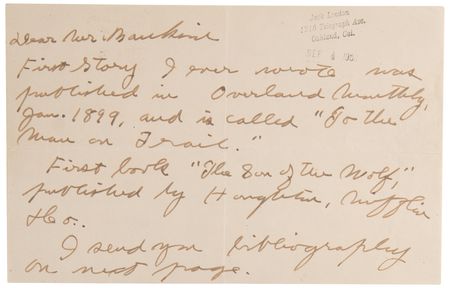 Jack London
1216 Telegraph Ave.
Oakland, Cal.
SEP 4 190
Dear Mr.
First Story I ever wrote was
published in Overland Monthly,
Jan. 1899, and is called "To the
Man on Trail."
First book "The Son of the Wolf,"
published by Houghton, Mifflin
& Co..
I send you bibliography
on next page.